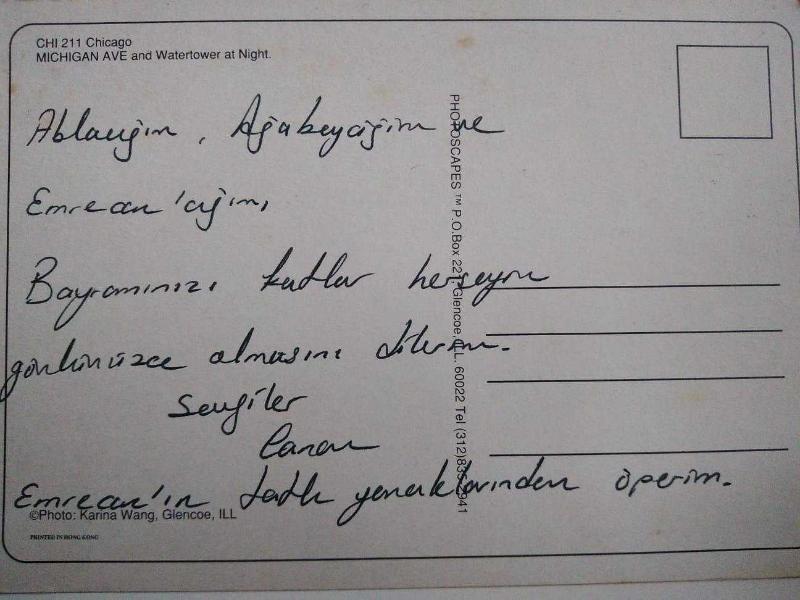 CHI 211 Chicago
MICHIGAN AVE and Watertower at Night.
Ablacığım, Ağabeyciğim ve
Emrecan'cığım,
Bayramınızı kutlar herşeyin
gönlünüzce olmasını dilerim.
Sevgiler
Canan
Emrecan'ın tatlı yanaklarından öperim.
PHOTOSCAPES ™ P.O.Box 221, Glencoe, ILL. 60022 Tel (312)835-
©Photo: Karina Wang, Glencoe, ILL
PRINTED IN HONG KONG